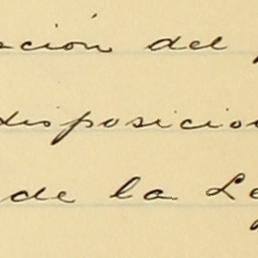 ación del
disposicion
de la Le